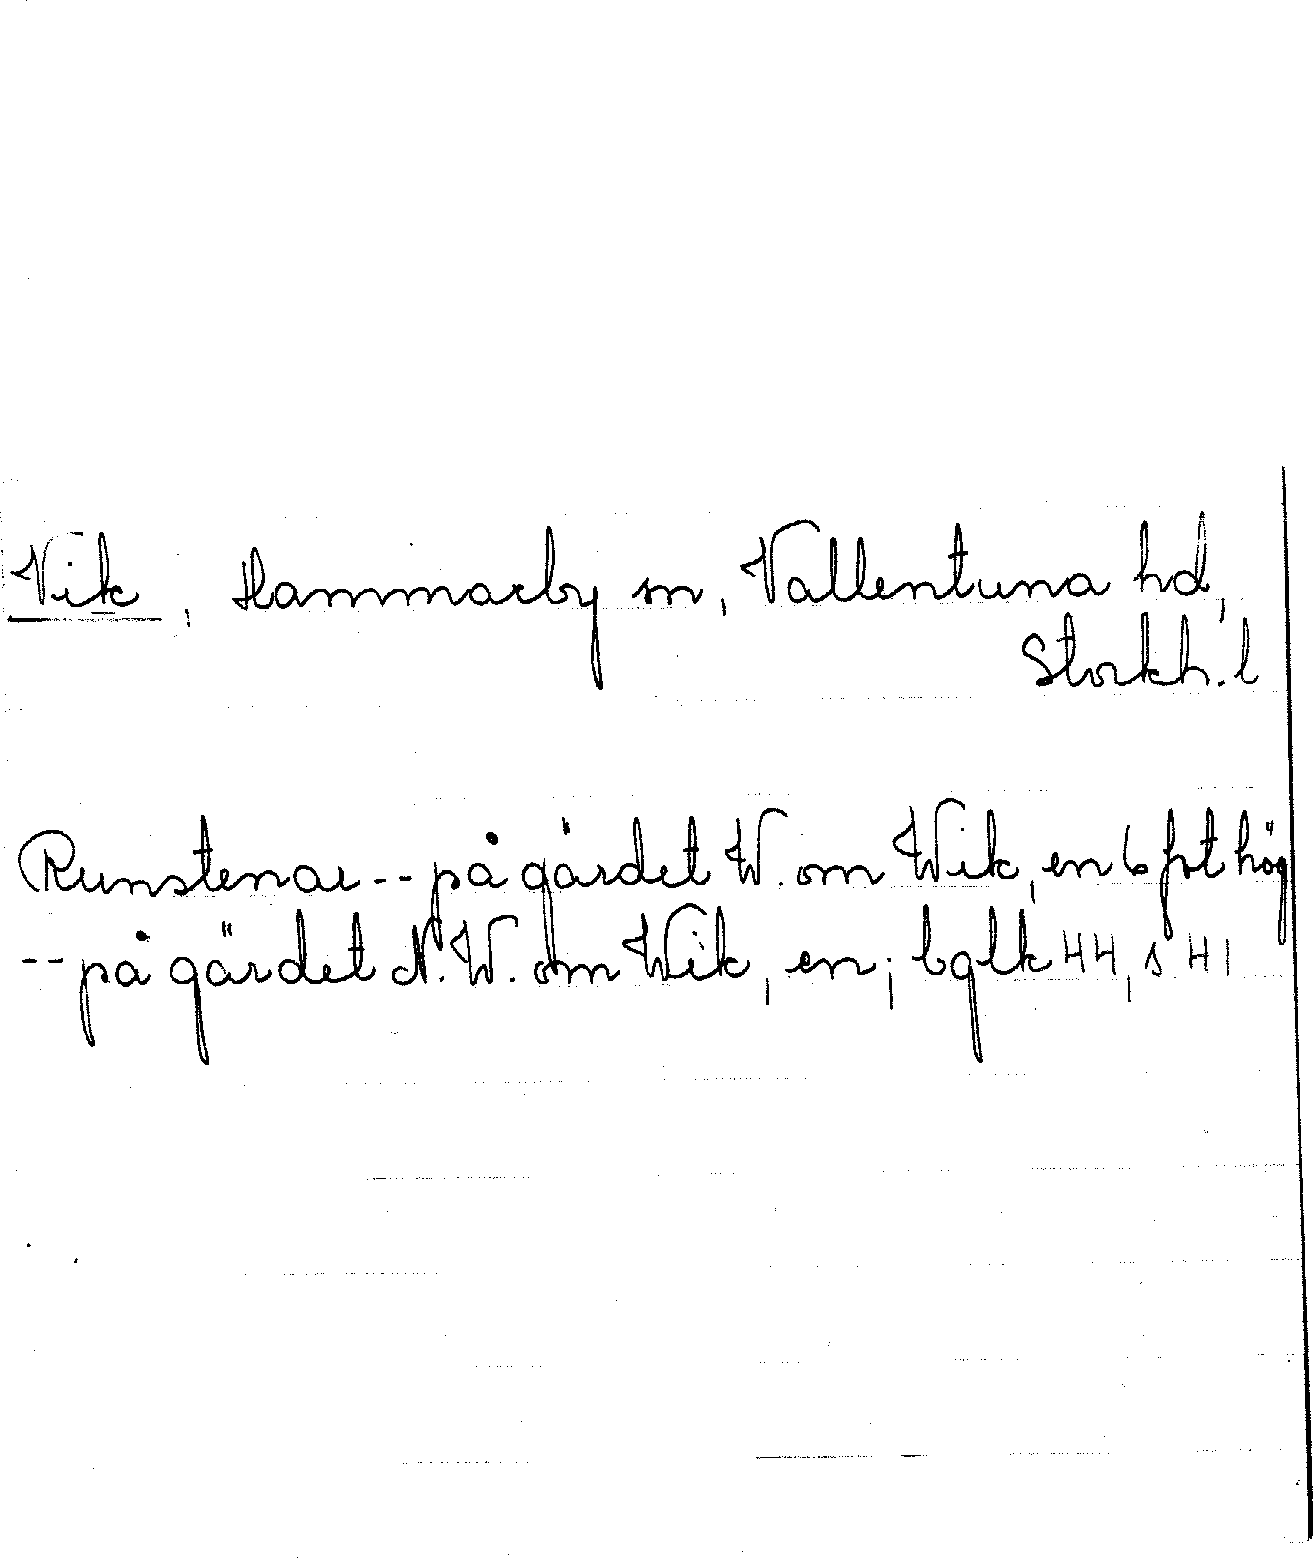 Vik, Hammarby sn, Vallentuna hd,
Stockh. l
Runstenar -- på gärdet W. om Wik, en 6 fot hög
-- på gärdet N.W. om Wik, en; bglk 44, s 41